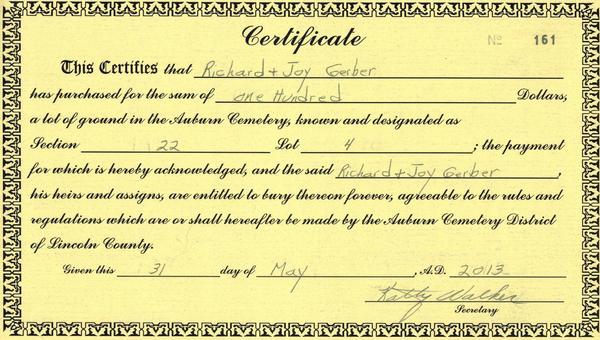 Certificate
No 161
This Certifies that Richard + Joy Gerber
has purchased for the sum of one Hundred Dollars,
a lot of ground in the Auburn Cemetery, known and designated as
Section 22 Lot 4 ; the payment
for which is hereby acknowledged, and the said Richard + Joy Gerber ,
his heirs and assigns, are entitled to bury thereon forever, agreeable to the rules and
regulations which are or shall hereafter be made by the Auburn Cemetery District
of Lincoln County.
Given this 31 day of May , A.D. 2013
Kathy Walker
Secretary